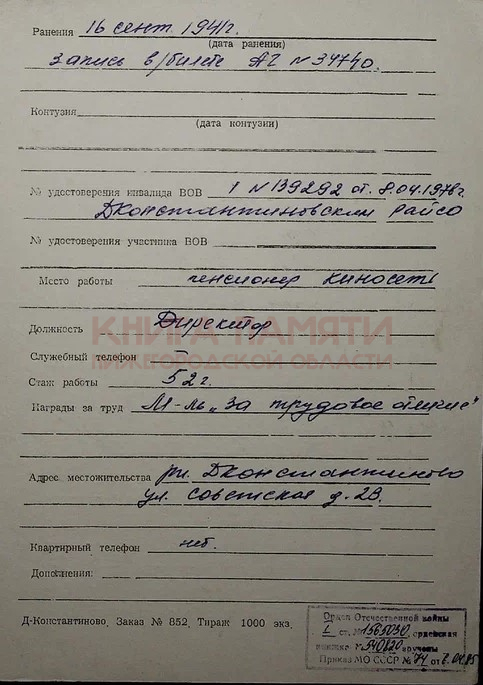 Ранения 16 сент. 1941г.
(дата ранения)
запись в/билете АГ №34740.
Контузия
(дата контузии)
№ удостоверения инвалида ВОВ 1 №139292 от 8.04.1978г
Дконстантиновским райсо
№ удостоверения участника ВОВ
Место работы пенсионер киносеть
КНИГА ПАМЯТИ
НИЖЕГОРОДСКОЙ ОБЛАСТИ
Должность Директор
Служебный телефон —
Стаж работы 52г.
Награды за труд М-ль „За трудовое отличие"
Адрес местожительства рп. Дконстантиново
ул. Советская д. 23.
Квартирный телефон нет.
Дополнения:
Д-Константиново, Заказ № 852, Тираж 1000 экз.
Орден Отечественной войны
I ст. № 1565030, орденская
книжка № 540820 вручены
Приказ МО СССР № 74 от 2.04.85